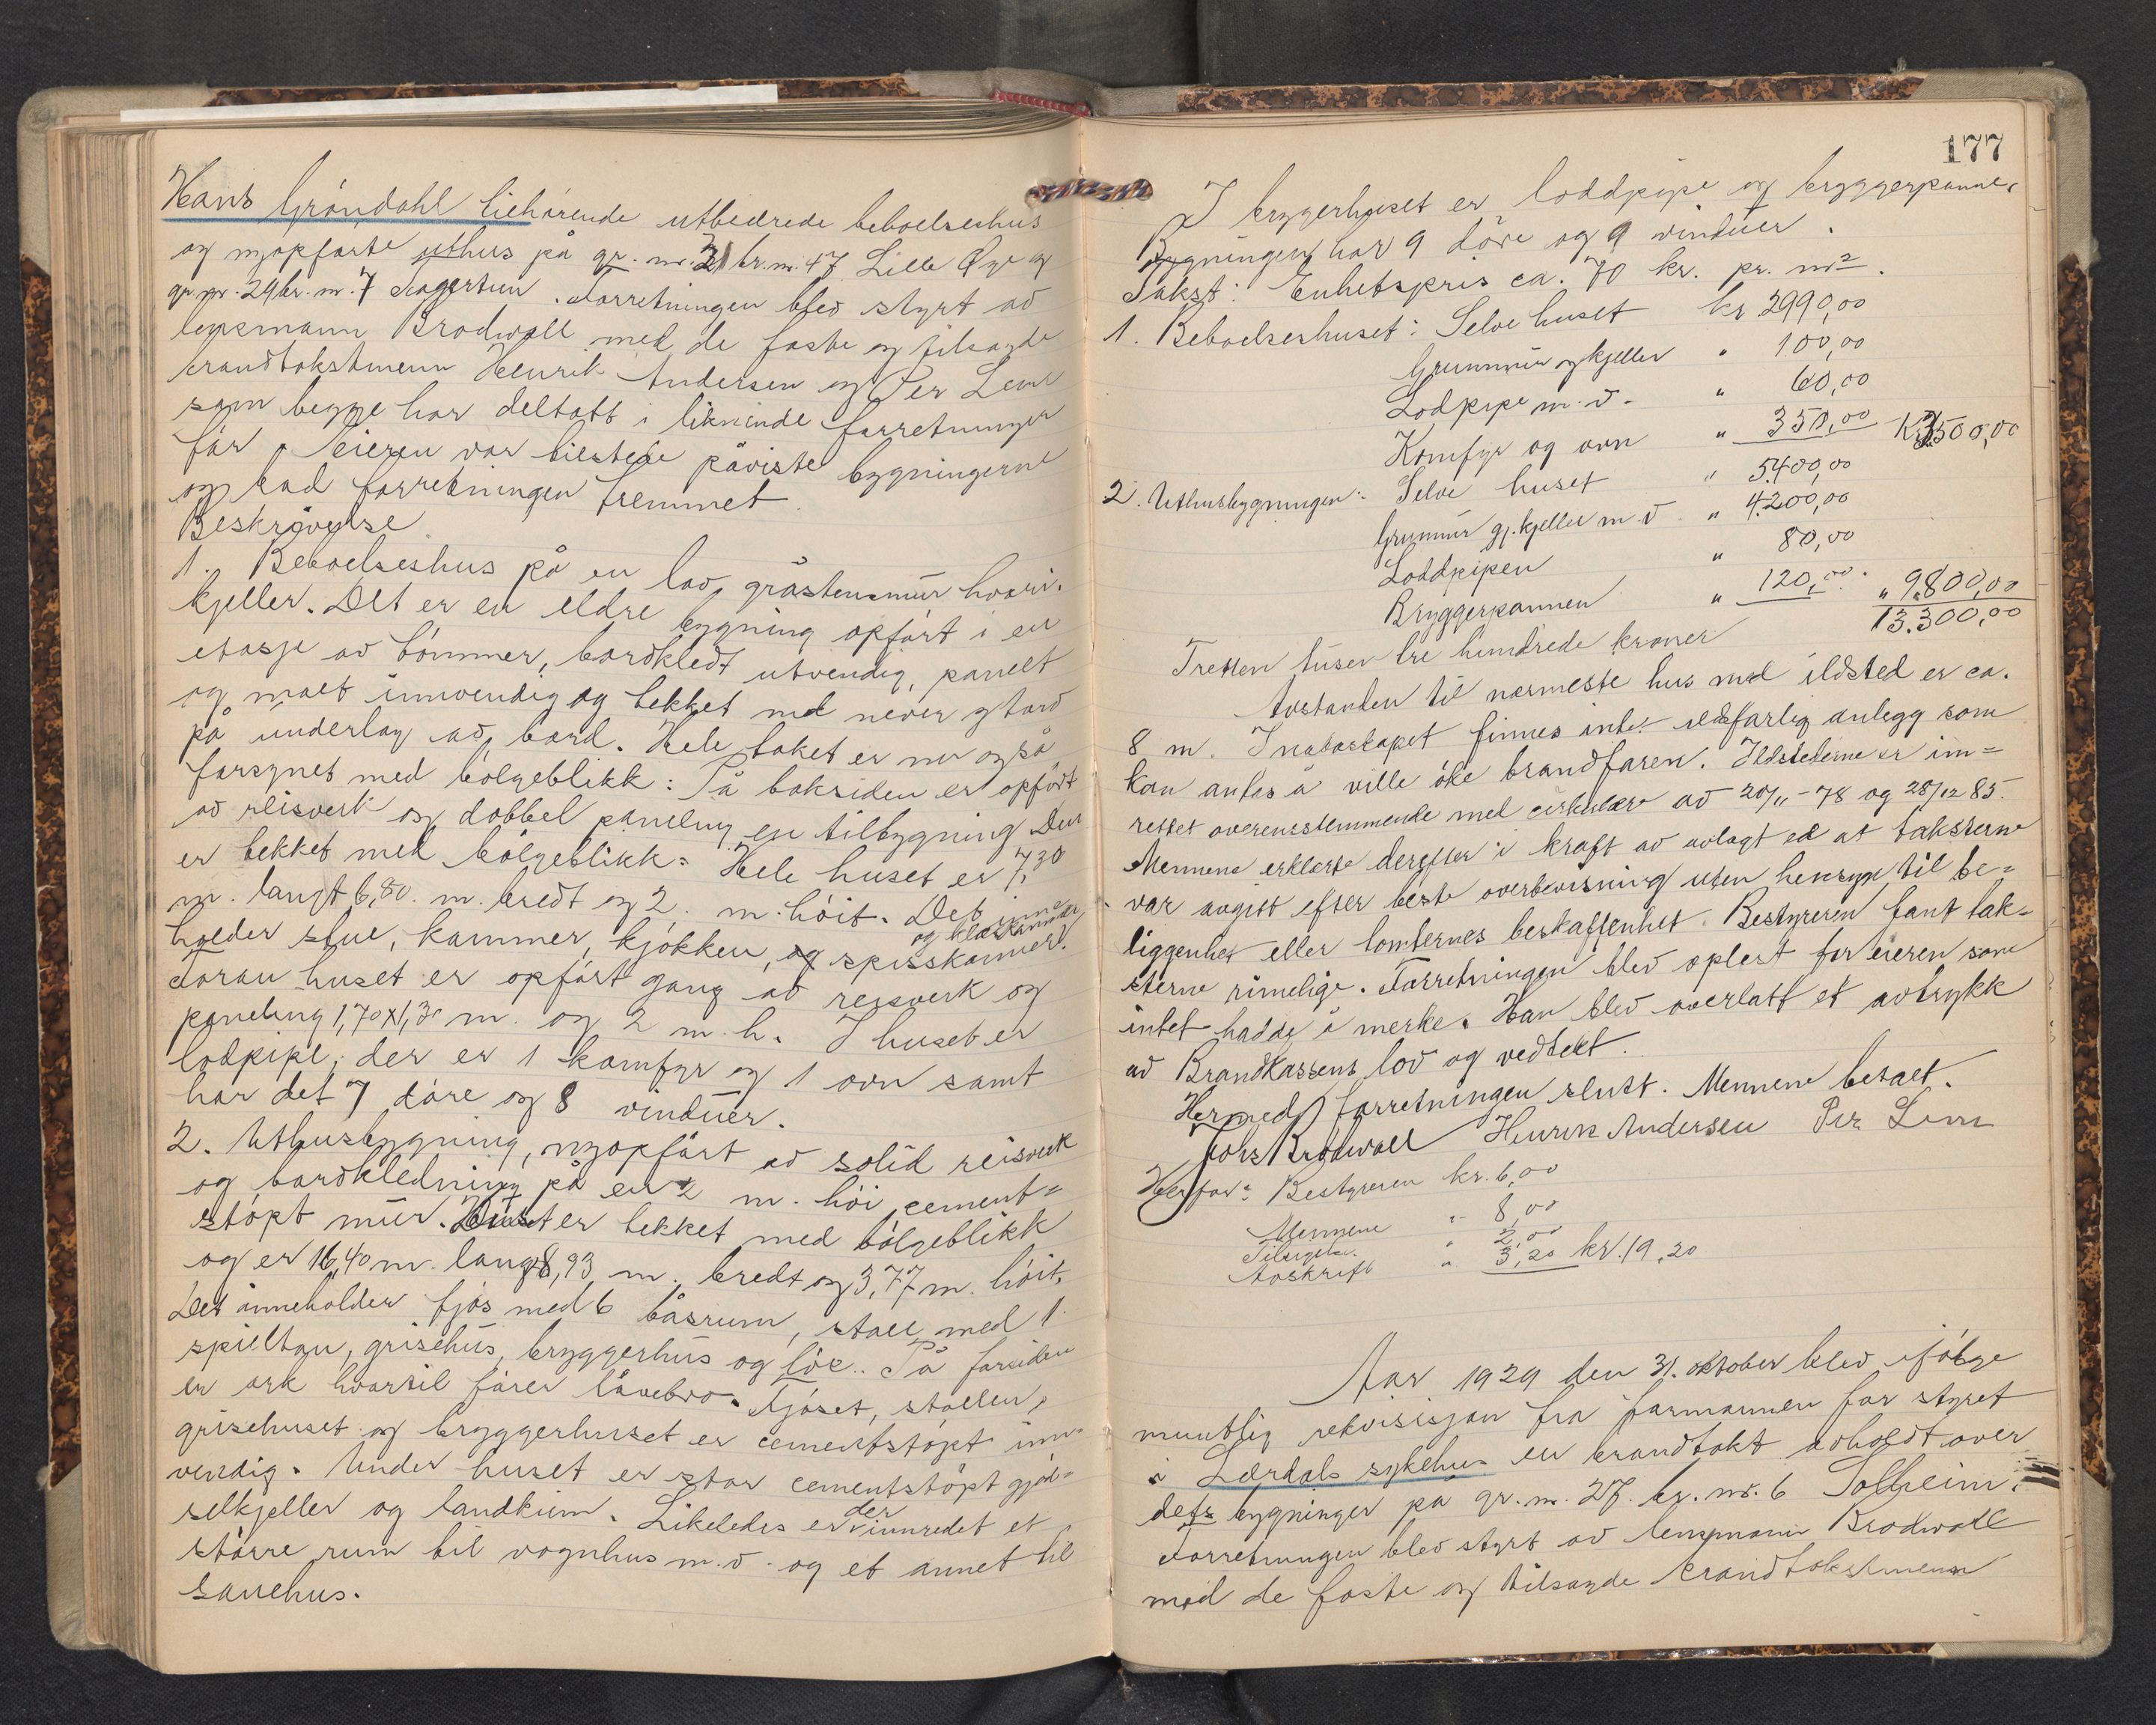 Hans Gröndahl tiehörende utbedrede beboelseshus
og nyopförte uthus på gr. nr. 21 br. nr. 47 Lille Öye og
gr. nr. 29 br. nr. 7 . Forretningen blev styrt av
lensmann Brodwall med de faste og tilsagde
brandtakstmenn Henrik Andersen og Per Lem
som begge har deltatt i liknende forretninger
för. Eieren var tilstede påviste bygningerne
og bad forretningen fremmet.
Beskrivelse
1. Beboelseshus på en lav gråstensmur hvori
kjeller. Det er en eldre bygning opfört i en
etasje av tömmer, bordkledt utvendig, panelt
og malt innvendig og tekket med never og tord
på underlag av bord. Hele taket er nu også
forsynet med bölgeblikk: På baksiden er opfört
av reisverk og dobbel paneling en tilbygning Den
er tekket med bölgeblikk. Hele huset er 7,30
m. langt 6,80 m. bredt og 2 m. höit. Det inne-
holder stue, kammer, kjökken, og spisskammer og kleskammer.
Foran huset er opfört gang av reisverk og
paneling 1,70 x 1,30 m. og 2 m. h. I huset er
lodpipe, der er 1 komfyr og 1 ovn samt
har det 7 döre og 8 vinduer.
2. Uthusbygning, nyopfört av solid reisverk
og bordkledning på en 2 m. höi cement-
stöpt mur. Huset er tekket med bölgeblikk
og er 16,40 m. langt 8,93 m. bredt og 3,77 m. höit.
Det inneholder fjös med 6 båsrum, stall med 1
spilltau, grisehus, bryggerhus og löe. På forsiden
er ark hvortil förer låvebro. Fjöset, stallen,
grisehuset og bryggerhuset er cementstöpt inn-
vendig. Under huset er stor cementstöpt gjöd-
selkjeller og landkum. Likeledes er der innredet et
större rum til vognhus m.v. og et annet til
sauehus.
177
I bryggerhuset er loddpipe og bryggerpanne.
Bygningen har 9 döre og 9 vinduer.
Takst: Enhetspris ca. 70 kr. pr. m2.
1. Beboelseshuset: Selve huset kr 2990,00
Grunnmur og kjeller " 100,00
Lodpipe m.v. " 60,00
Komfyr og ovn " 350,00 Kr. 3500,00
2. Uthusbygningen: Selve huset " 5.400,00
Grunnmur gj.kjeller m.v. " 4.200,00
Loddpipen " 80,00
Bryggerpannen " 120,00. " 9.800,00
13.300,00
Tretten tusen tre hundrede kroner
Avstanden til nærmeste hus med ildsted er ca.
8 m. I naboskapet finnes intet ildsfarlig anlegg som
kan antas å ville öke brandfaren. Ildstederne er inn-
rettet overensstemmende med cirkulære av 20/11-78 og 28/12 85.
Mennene erklærte derefter i kraft av avlagt ed at taksterne
var avgitt efter beste overbevisning uten hensyn til be-
liggenhet eller tomternes beskaffenhet. Bestyreren fant tak-
sterne rimelige. Forretningen blev oplest for eieren som
intet hadde å merke. Han blev overlatt et avtrykk
av Brandkassens lov og vedtekt.
Hermed forretningen slutt. Mennene betalt.
Johs Brodwall Henrik Andersen Per Lem
Herfor: Bestyreren kr. 6,00
Mennene " 8,00
Tilsigelse. " 2,00
Avskrift " 3,20 kr. 19,20
Aar 1929 den 31. oktober blev ifölge
muntlig rekvisisjon fra formannen for styret
i Lærdals sykehus en brandtakt avholdt over
dets bygninger på gr. nr. 27. br. nr. 6 Solheim.
Forretningen blev styrt av lensmann Brodwall
med de faste og tilsagde brandtakstmenn